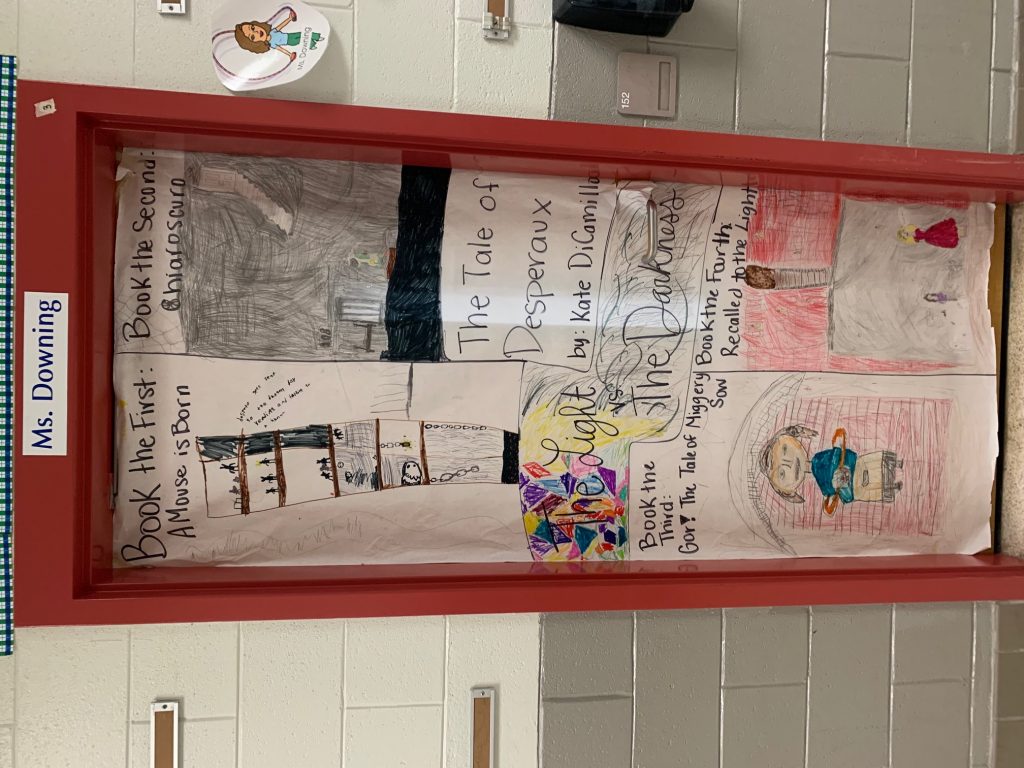 Ms. Downing
Ms. Downing
3
152
Book the First:
A Mouse is Born
Book the Second:
Chiaroscuro
The Tale of
Desperaux
by: Kate DiCamillo
The Light
vs.
The Darkness
Book the
Third:
Gor! The Tale of Miggery
Sow
Book the Fourth
Recalled to the Light